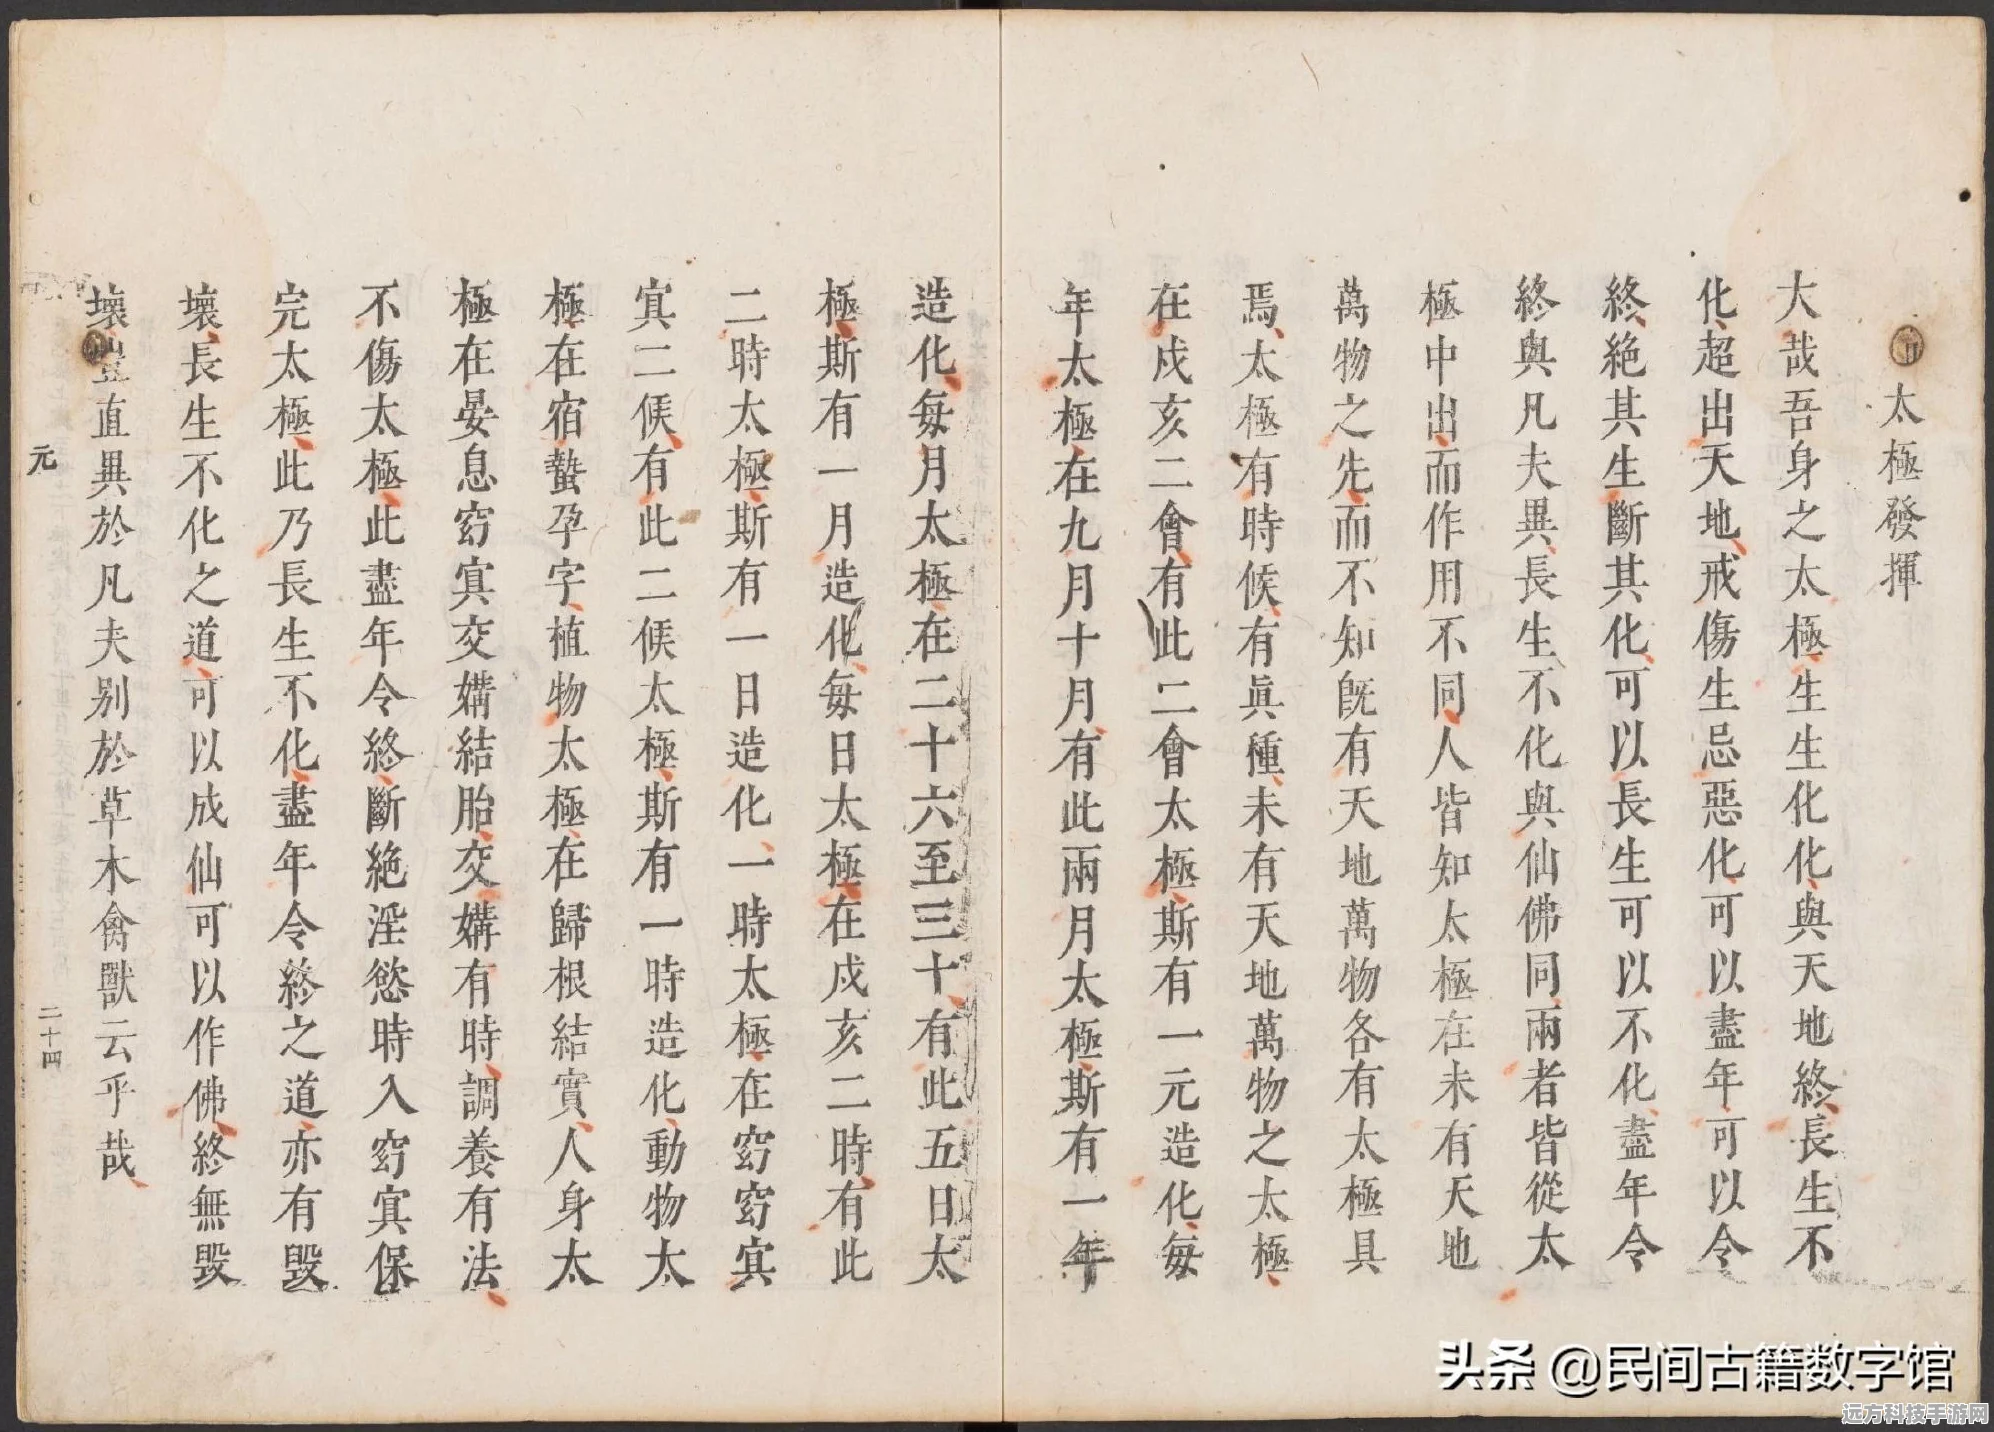 太極發揮
大哉吾身之太極生生化化與天地終長生不
化超出天地戒傷生忌惡化可以盡年可以令
終絶其生斷其化可以長生可以不化盡年令
終與凡夫異長生不化與仙佛同兩者皆從太
極中出而作用不同人皆知太極在未有天地
萬物之先而不知旣有天地萬物各有太極具
焉太極有時候有眞種未有天地萬物之太極
在戌亥二會有此二會太極斯有一元造化每
年太極在九月十月有此兩月太極斯有一年
造化每月太極在二十六至三十有此五日太
極斯有一月造化每日太極在戌亥二時有此
二時太極斯有一日造化一時太極在窈窈寘
寘二候有此二候太極斯有一時造化動物太
極在宿蟄孕字植物太極在歸根結實人身太
極在晏息窈寘交媾結胎交媾有時調養有法
不傷太極此盡年令終斷絶淫慾時入窈寘保
完太極此乃長生不化盡年令終之道亦有毀
壞長生不化之道可以成仙可以作佛終無毀
壞豈直異於凡夫别於草木禽獸云乎哉
元
二十四
头条 @民间古籍数字馆
远方科技手游网